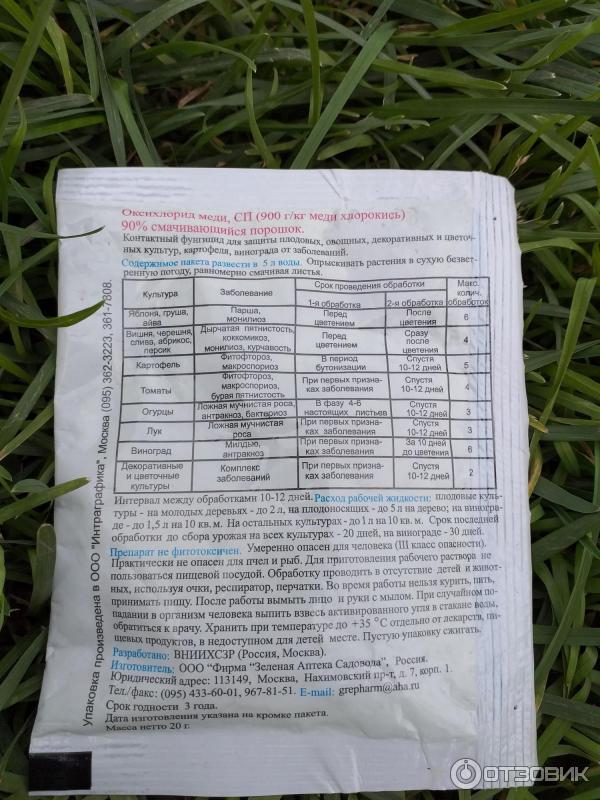 Оксихлорид меди, СП (900 г/кг меди хлорокись)
90% смачивающийся порошок.
Контактный фунгицид для защиты плодовых, овощных, декоративных и цветоч-
ных культур, картофеля, винограда от заболеваний.
Содержимое пакета развести в 5 л воды. Опрыскивать растения в сухую безвет-
ренную погоду, равномерно смачивая листья.
Культура Заболевание Срок проведения обработки Макс. колич. обработок
1-я обработка 2-я обработка
Яблоня, груша, айва Парша, монилиоз Перед цветением После цветения 6
Вишня, черешня, слива, абрикос, персик Дырчатая пятнистость, коккомикоз, монилиоз, курчавость Перед цветением Сразу после цветения 4
Картофель Фитофтороз, макроспориоз В период бутонизации Спустя 10-12 дней 5
Томаты Фитофтороз, макроспориоз, бурая пятнистость При первых призна- ках заболевания Спустя 10-12 дней 4
Огурцы Ложная мучнистая роса, антракноз, бактериоз В фазу 4-6 настоящих листьев Спустя 10-12 дней 3
Лук Ложная мучнистая роса При первых призна- ках заболевания Спустя 10-12 дней 3
Виноград Милдью, антракноз При первых призна- ках заболевания За 10 дней до цветения 6
Декоративные и цветочные культуры Комплекс заболеваний При первых призна- ках заболевания Спустя 10-12 дней 2
Интервал между обработками 10-12 дней. Расход рабочей жидкости: плодовые куль-
туры - на молодых деревьях - до 2 л, на плодоносящих - до 5 л на дерево; на виногра-
де - до 1,5 л на 10 кв. м. На остальных культурах - до 1 л на 10 кв. м. Срок последней
обработки до сбора урожая на всех культурах - 20 дней, на винограде - 30 дней.
Препарат не фитотоксичен. Умеренно опасен для человека (III класс опасности).
Практически не опасен для пчел и рыб. Для приготовления рабочего раствора не
пользоваться пищевой посудой. Обработку проводить в отсутствие детей и живот-
ных, используя очки, респиратор, перчатки. Во время работы нельзя курить, пить,
принимать пищу. После работы вымыть лицо и руки с мылом. При случайном по-
падании в организм человека выпить взвесь активированного угля в стакане воды,
обратиться к врачу. Хранить при температуре до +35 °С отдельно от лекарств, пи-
щевых продуктов, в недоступном для детей месте. Пустую упаковку сжигать.
Разработано: ВНИИХСЗР (Россия, Москва).
Изготовитель: ООО "Фирма "Зеленая Аптека Садовода", Россия.
Юридический адрес: 113149, Москва, Нахимовский пр-т, д. 7, корп. 1.
Тел./факс: (095) 433-60-01, 967-81-51. E-mail: grepharm@aha.ru
Срок годности 3 года.
Дата изготовления указана на кромке пакета.
Масса нетто 20 г.
Упаковка произведена в ООО "Интраграфика". Москва (095) 362-3223, 361-7808.
ОТЗОВИК